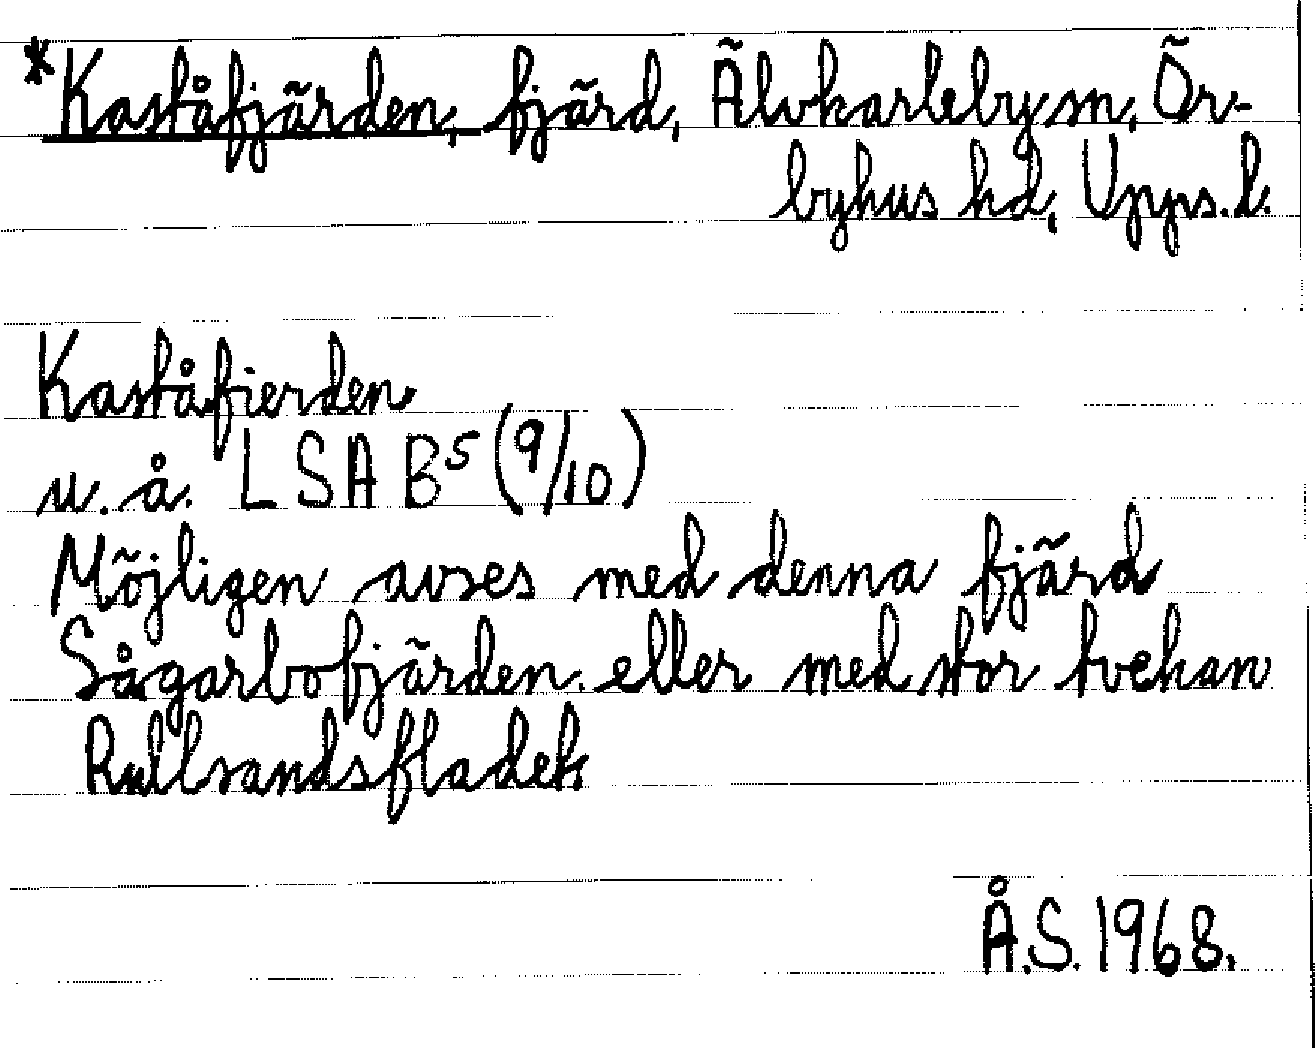 *Kaståfjärden, fjärd, Älvkarleby sn, Ör-
byhus hd, Upps. l.
Kaståfierden
u. å. LSA B5 (9/10)
Möjligen avses med denna fjärd
Sågarbofjärden. eller med stor tvekan
Rullsandsfladet
Å.S. 1968.